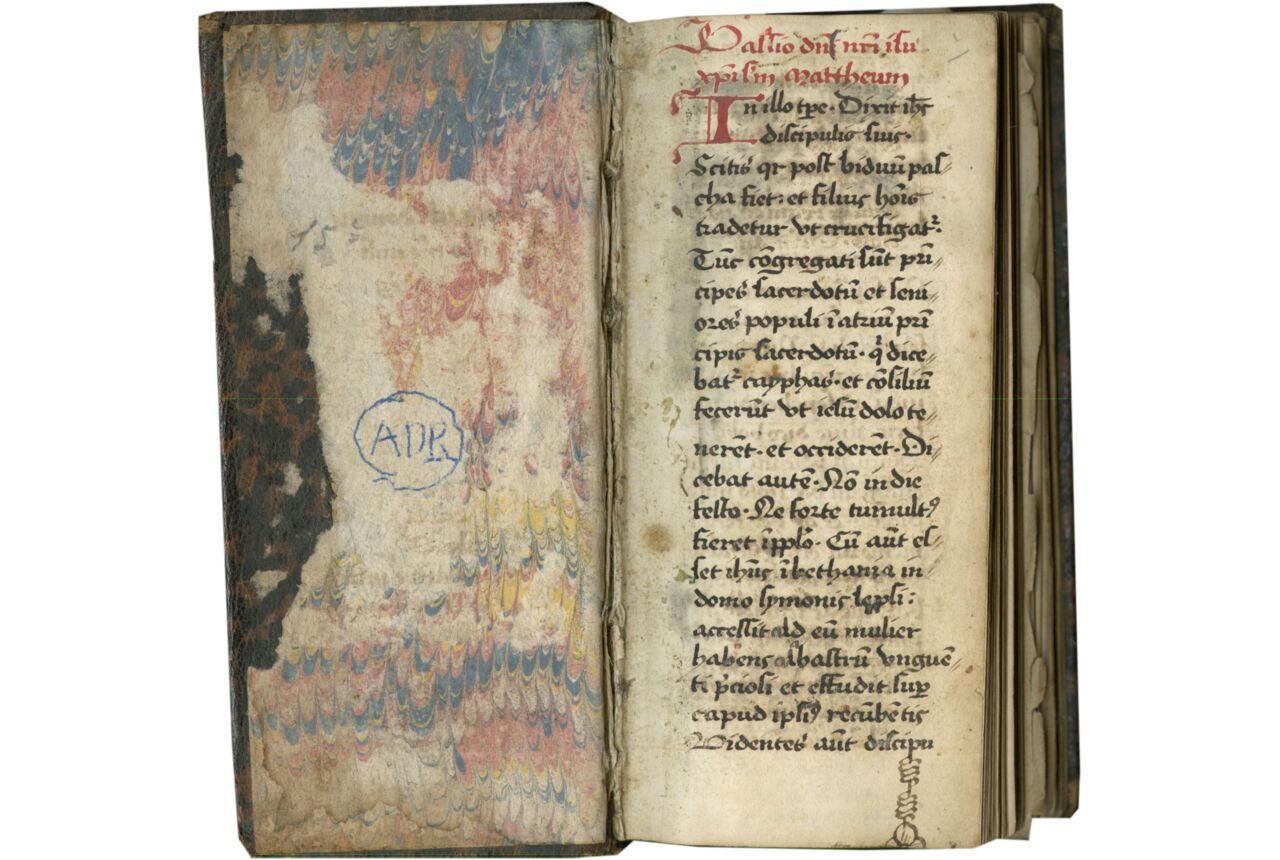 ADR
Passio dñi nrī ihu
xpī sm̄ Mattheum
In illo tpe · Dixit ihs̄
discipulis suis ·
Scitis qr post biduū pas
cha fiet : et filius hoīs
tradetur vt crucifigat᷑ ·
Tūc cōgregati sūt prī〃
cipes sacerdotū et seni〃
ores populi ī atriū prī
cipis sacerdotū · q̄ dice〃
bat᷑ cayphas · et cōsiliū
fecerūt vt iesū dolo te〃
nerēt · et occiderēt · Di〃
cebat autē · Nō in die
festo · Ne forte tumultꝰ
fieret ī pplo · Cū aūt es〃
set ihūs ī bethania in
domo symonis lepsi :
accessit ad eū mulier
habens albastrū vnguē〃
ti p̄ciosi et effudit sup
capud ipsiꝰ recūbētis
Videntes aūt discipu